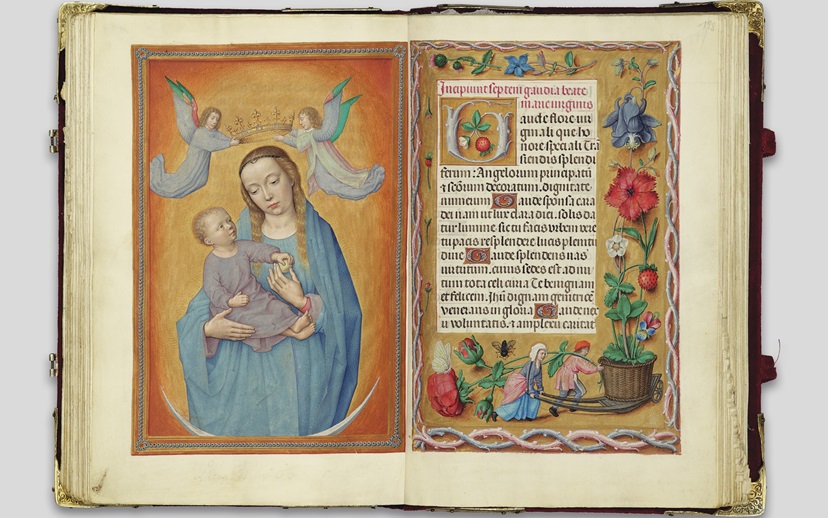 Incipiunt septem gaudia beate
marie virginis
Gaude flore vir
ginali que ho
nore speciali Trã
scendis splendi
ferum : Angelorum principatũ
⁊ scõrum decoratum, dignitate
numerum Gaude sponsa cara
dei nam ut lux clara diei. solis da
tur lumine sic tu facis urbem vere
tu pacis resplendere lucis plenitu
dine Gaude splendens uas
virtutum. cuius sedes est ad nu
tum tota celi curia Te benignam
et felicem. Jhũ dignam genitrice
venerans in gloria Gaude nex
u voluntatis. ⁊ amplexu caritat